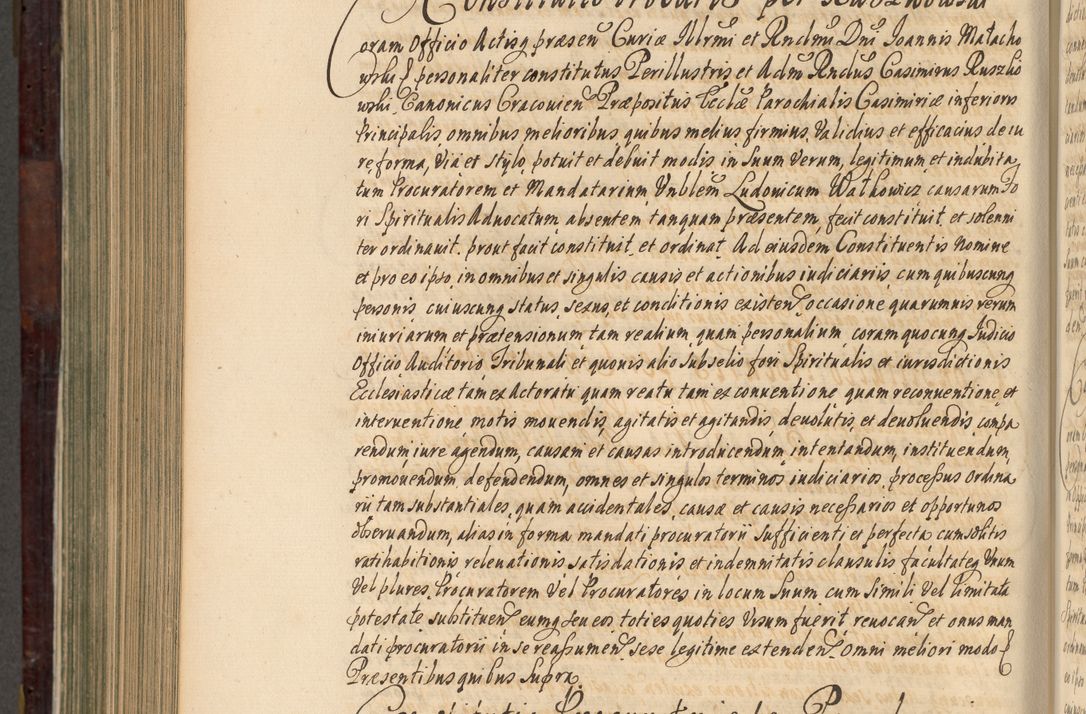 Constitutio Procuratoris per Ruszkowski
oram Officio Actisq́ præsen Curiæ Illrmi et Rndmi Dni Joannis Matacho
wski personaliter constitutus Perillustris et Adm Rndus Casimirus Ruszko
wski Canonicus Cracovien Præpositus Ecclæ Parochialis Casimiriæ inferioris
Principalis, omnibus melioribus, quibus melius, firmius, validius et efficacius de iu
re, forma, via et stylo, potuit et debuit modis, in Suum Verum, legitimum, et indubita
tum Procuratorem et Mandatarium, Vnblem Ludovicum Watkowicz causarum Fo
ri Spiritualis Advocatum, absentem, tanquam præsentem, fecit constituit, et solenni
ter ordinavit. prout facit constituit, et ordinat. Ad eiusdem Constituentis Nomine
et pro eo ipso, in omnibus et singulis causis et actionibus iudiciariis, cum quibuscunq́
personis, cuiuscunq́ status, sexus, et conditionis existen, occasione quarumvis rerum
iniuriarum et prætensionum tam realium, quam personalium, coram quocunq́ Judicio
Officio, Auditorio, Tribunali et quovis alio Subselio fori Spiritualis et iurisdictionis
Ecclesiasticæ tam ex Actoratu quam reatu tam ex conventione, quam reconventione, et
interventione motis movendis, agitatis et agitandis, devolutis, et devoluendis, compa
rendum, iure agendum, causam et causas introducendum, intentandum, instituendum,
promovendum, defendendum, omnes et singulos terminos iudiciarios, processus Ordina
rii tam substantiales, quam accidentales, causæ et causis necessarios et opportunos
observandum, alias in forma mandati procuratorii Sufficienti et perfecta cum solitis
ratihabitionis relevationis satisdationis et indemnitatis clausulis facultateq́ Vnum
Vel plures, Procuratorem Vel Procuratores in locum Suum cum Simili Vel limitata
potestate substituen eumq́ seu eos toties quoties Visum fuerit, revocan et onus man
dati procuratorii in se reassumen sese legitime extenden. Omni meliori modo
Præsentibus quibus Supra.